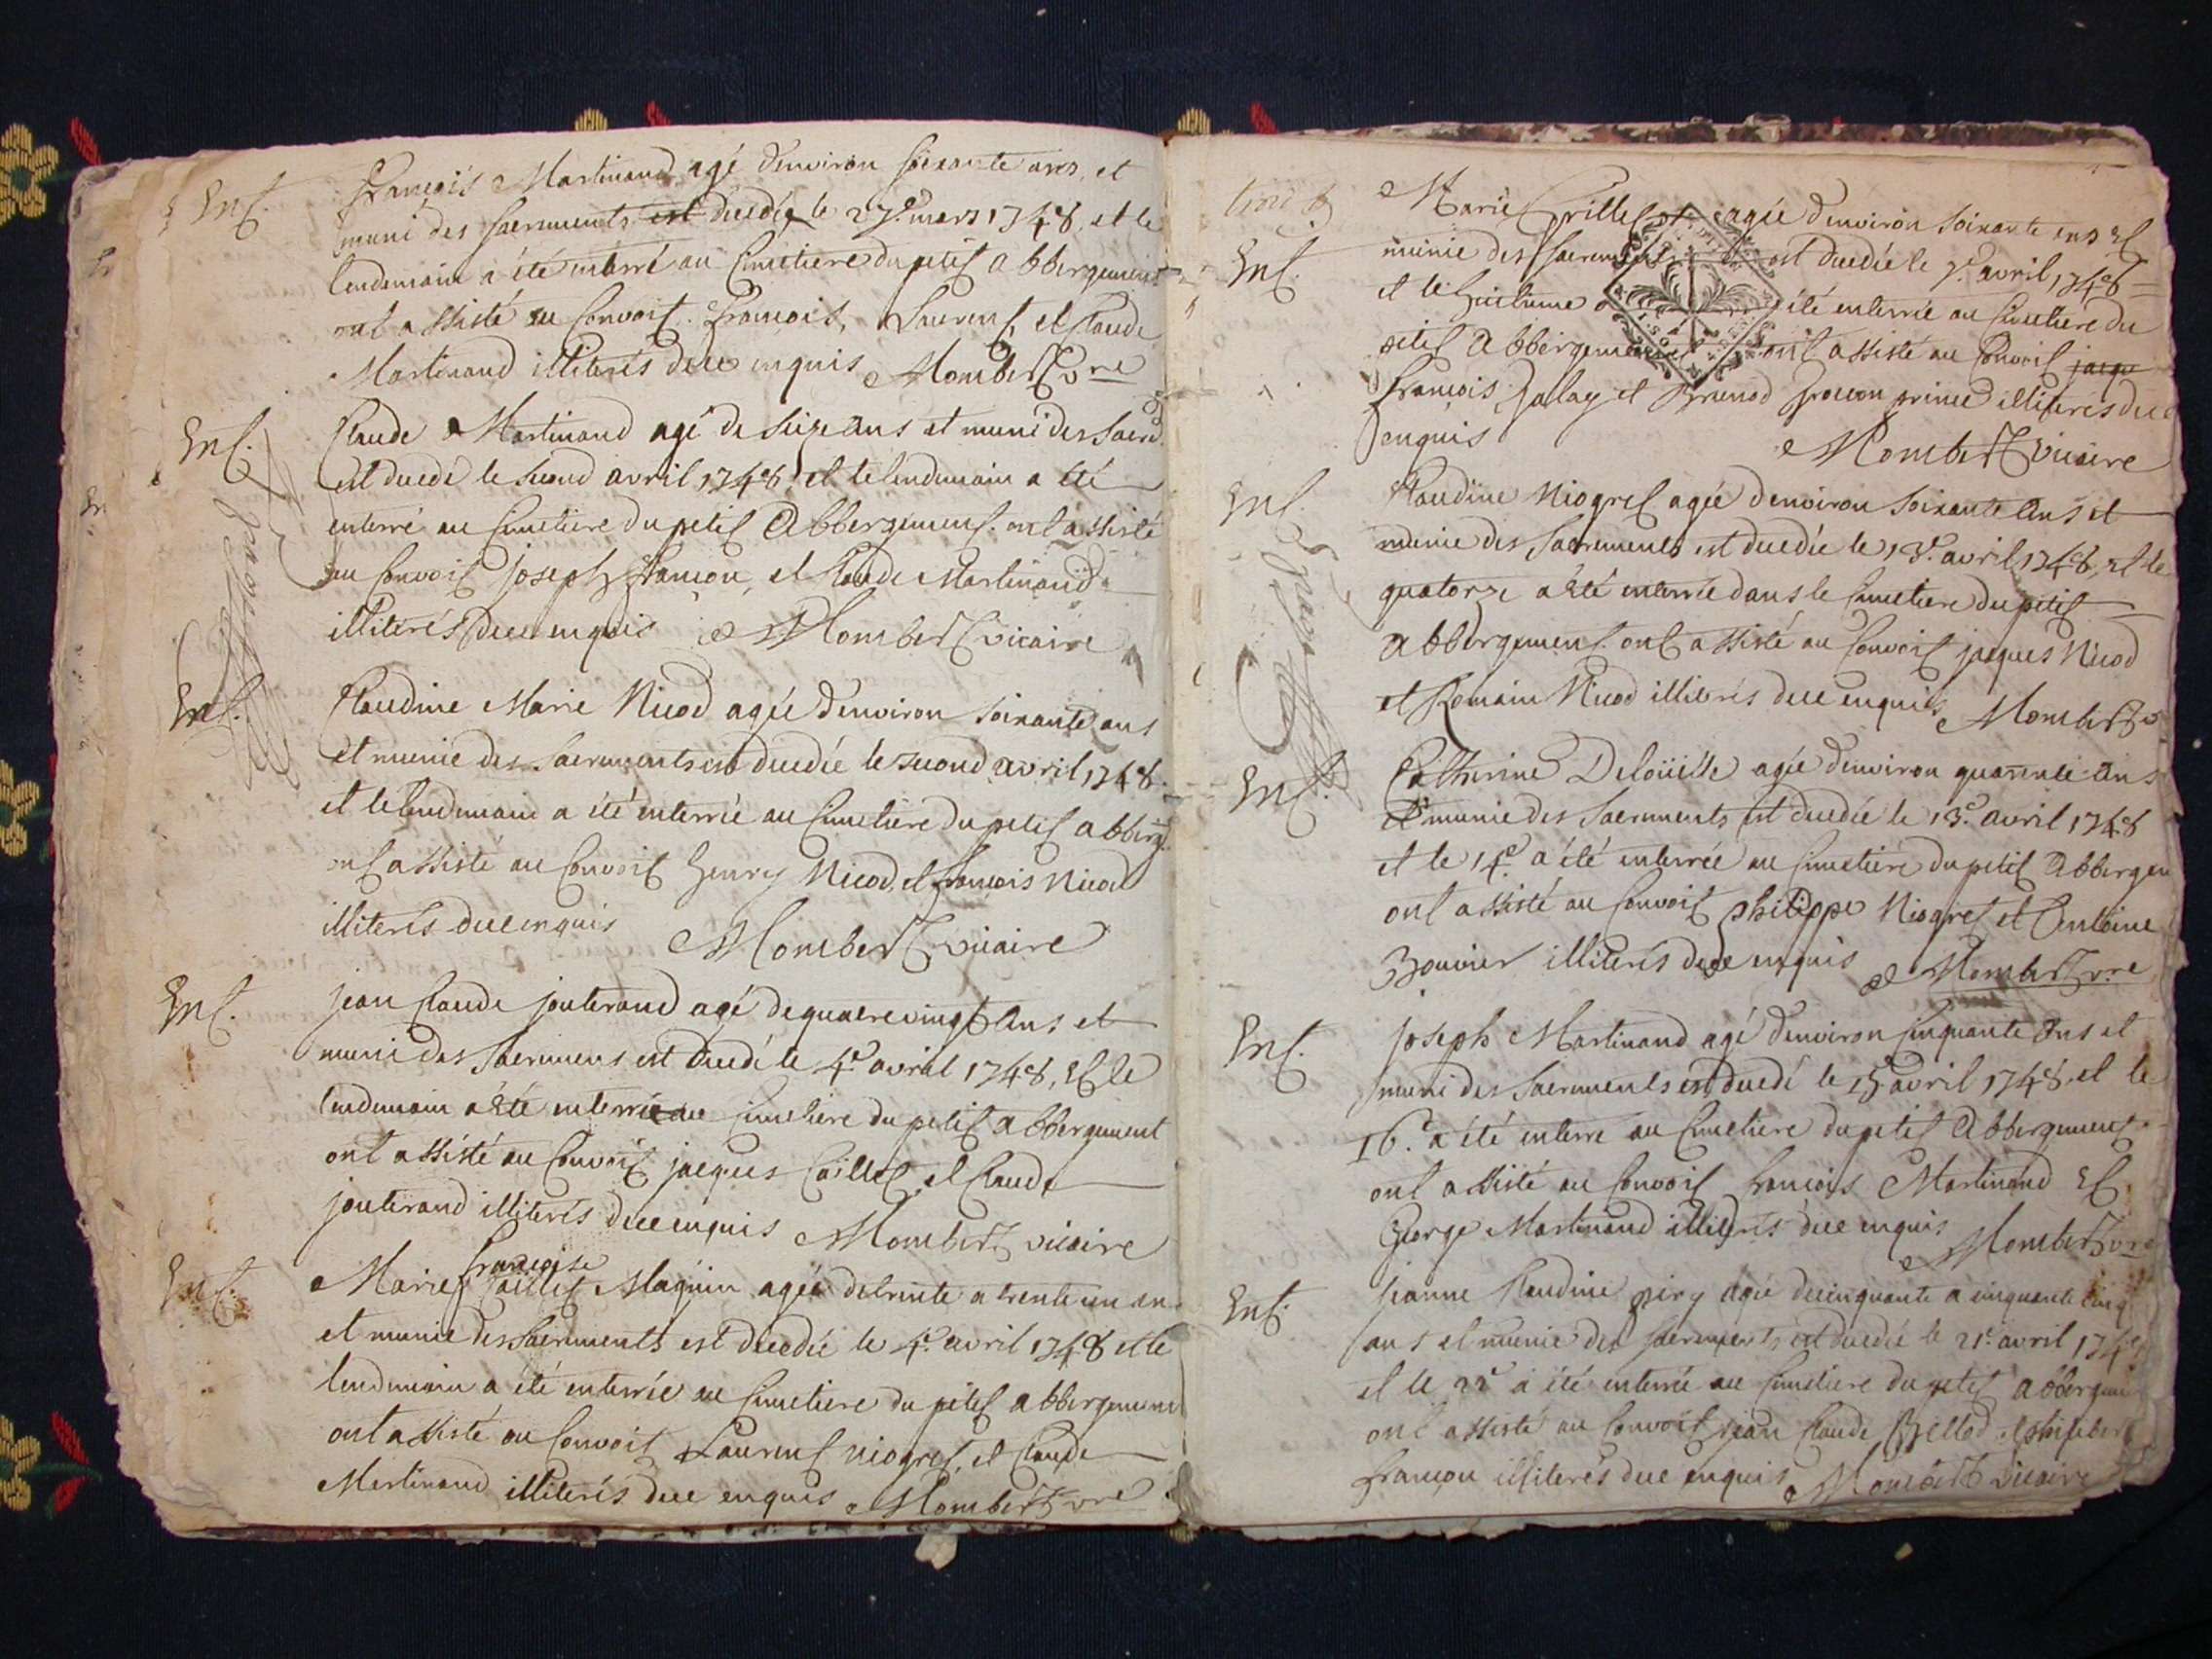 Ent.
françois Martinand agé d'environ soixante ans, et
muni des sacrements est decedé le 27e mars 1748, et le
lendemain a été enterré au Cimetiere du petit abbergement
ont assisté au Convoit françois, Laurent, et Claude
Martinand illiterés de ce enquis Mombert vre
Ent.
Claude Martinand agé de seize ans et muni des sacr.
est decedé le second avril 1748, et le lendemain a été
enterré au Cimetiere du petit Abbergement. ont assisté
au Convoit joseph francon, et Claude Martinand
illiterés de ce enquis Mombert vicaire
Ent.
Claudine Marie Nicod agée d'environ soixante ans
et munie des sacrements est decedée le second avril 1748.
et le lendemain a été enterrée au Cimetiere du petit abberg.
ont assisté au Convoit henry Nicod, et françois Nicod
illiterés de ce enquis Mombert vicaire
Ent.
jean Claude jouterand agé de quatrevingt ans et
muni des sacremens est decedé le 4e avril 1748, Et le
lendemain a été enterré au Cimetiere du petit abbergement
ont assisté au Convoit jacques Caillet et Claude
jouterand illiterés de ce enquis Mombert vicaire
Ent.
françoise
Marie Caillet Magnin agée de trente a trente un an
et munie des sacrements est decedée le 4e avril 1748 et le
lendemain a été enterrée au Cimetiere du petit abbergement
ont assisté au Convoit Laurent Niogret, et Claude
Martinand illiterés de ce enquis Mombert vre
Ent.
Marie Grillet agée d'environ soixante ans Et
munie des sacrements est decedée le 7e avril 1748
et le huitieme a été enterrée au Cimetiere du
petit Abbergement ont assisté au Convoit jacqu
françois Jalay et Brunod françon illiterés de ce
enquis Mombert vicaire
Ent.
Claudine Niogret agée d'environ soixante ans et
munie des sacrements est decedée le 13e avril 1748, et le
quatorze a été enterrée dans le Cimetiere du petit
abbergement. ont assisté au Convoit jacques Nicod
et Romain Nicod illiterés de ce enquis Mombert v
Ent.
Catherine Deloüille agée d'environ quarente ans
et munie des sacrements est decedée le 13e avril 1748
et le 14e a été enterrée au Cimetiere du petit Abbergem
ont assisté au Convoit philippe Niogret et Antoine
Bouvier illiterés de ce enquis Mombert vre
Ent.
joseph Martinand agé d'environ Cinquante ans et
muni des sacrements est decedé le 15 avril 1748, et le
16e a été enterré au Cimetiere du petit Abbergement
ont assisté au Convoit françois Martinand Et
George Martinand illiterés de ce enquis Mombert vre
Ent.
jeanne Claudine piry agée de cinquante a cinquante cinq
ans et munie des sacrements est decedée le 21e avril 1748
et le 22e a été enterrée au Cimetiere du petit abbergem
ont assisté au Convoit jean Claude Bellod et
françon illiterés de ce enquis Mombert vicaire